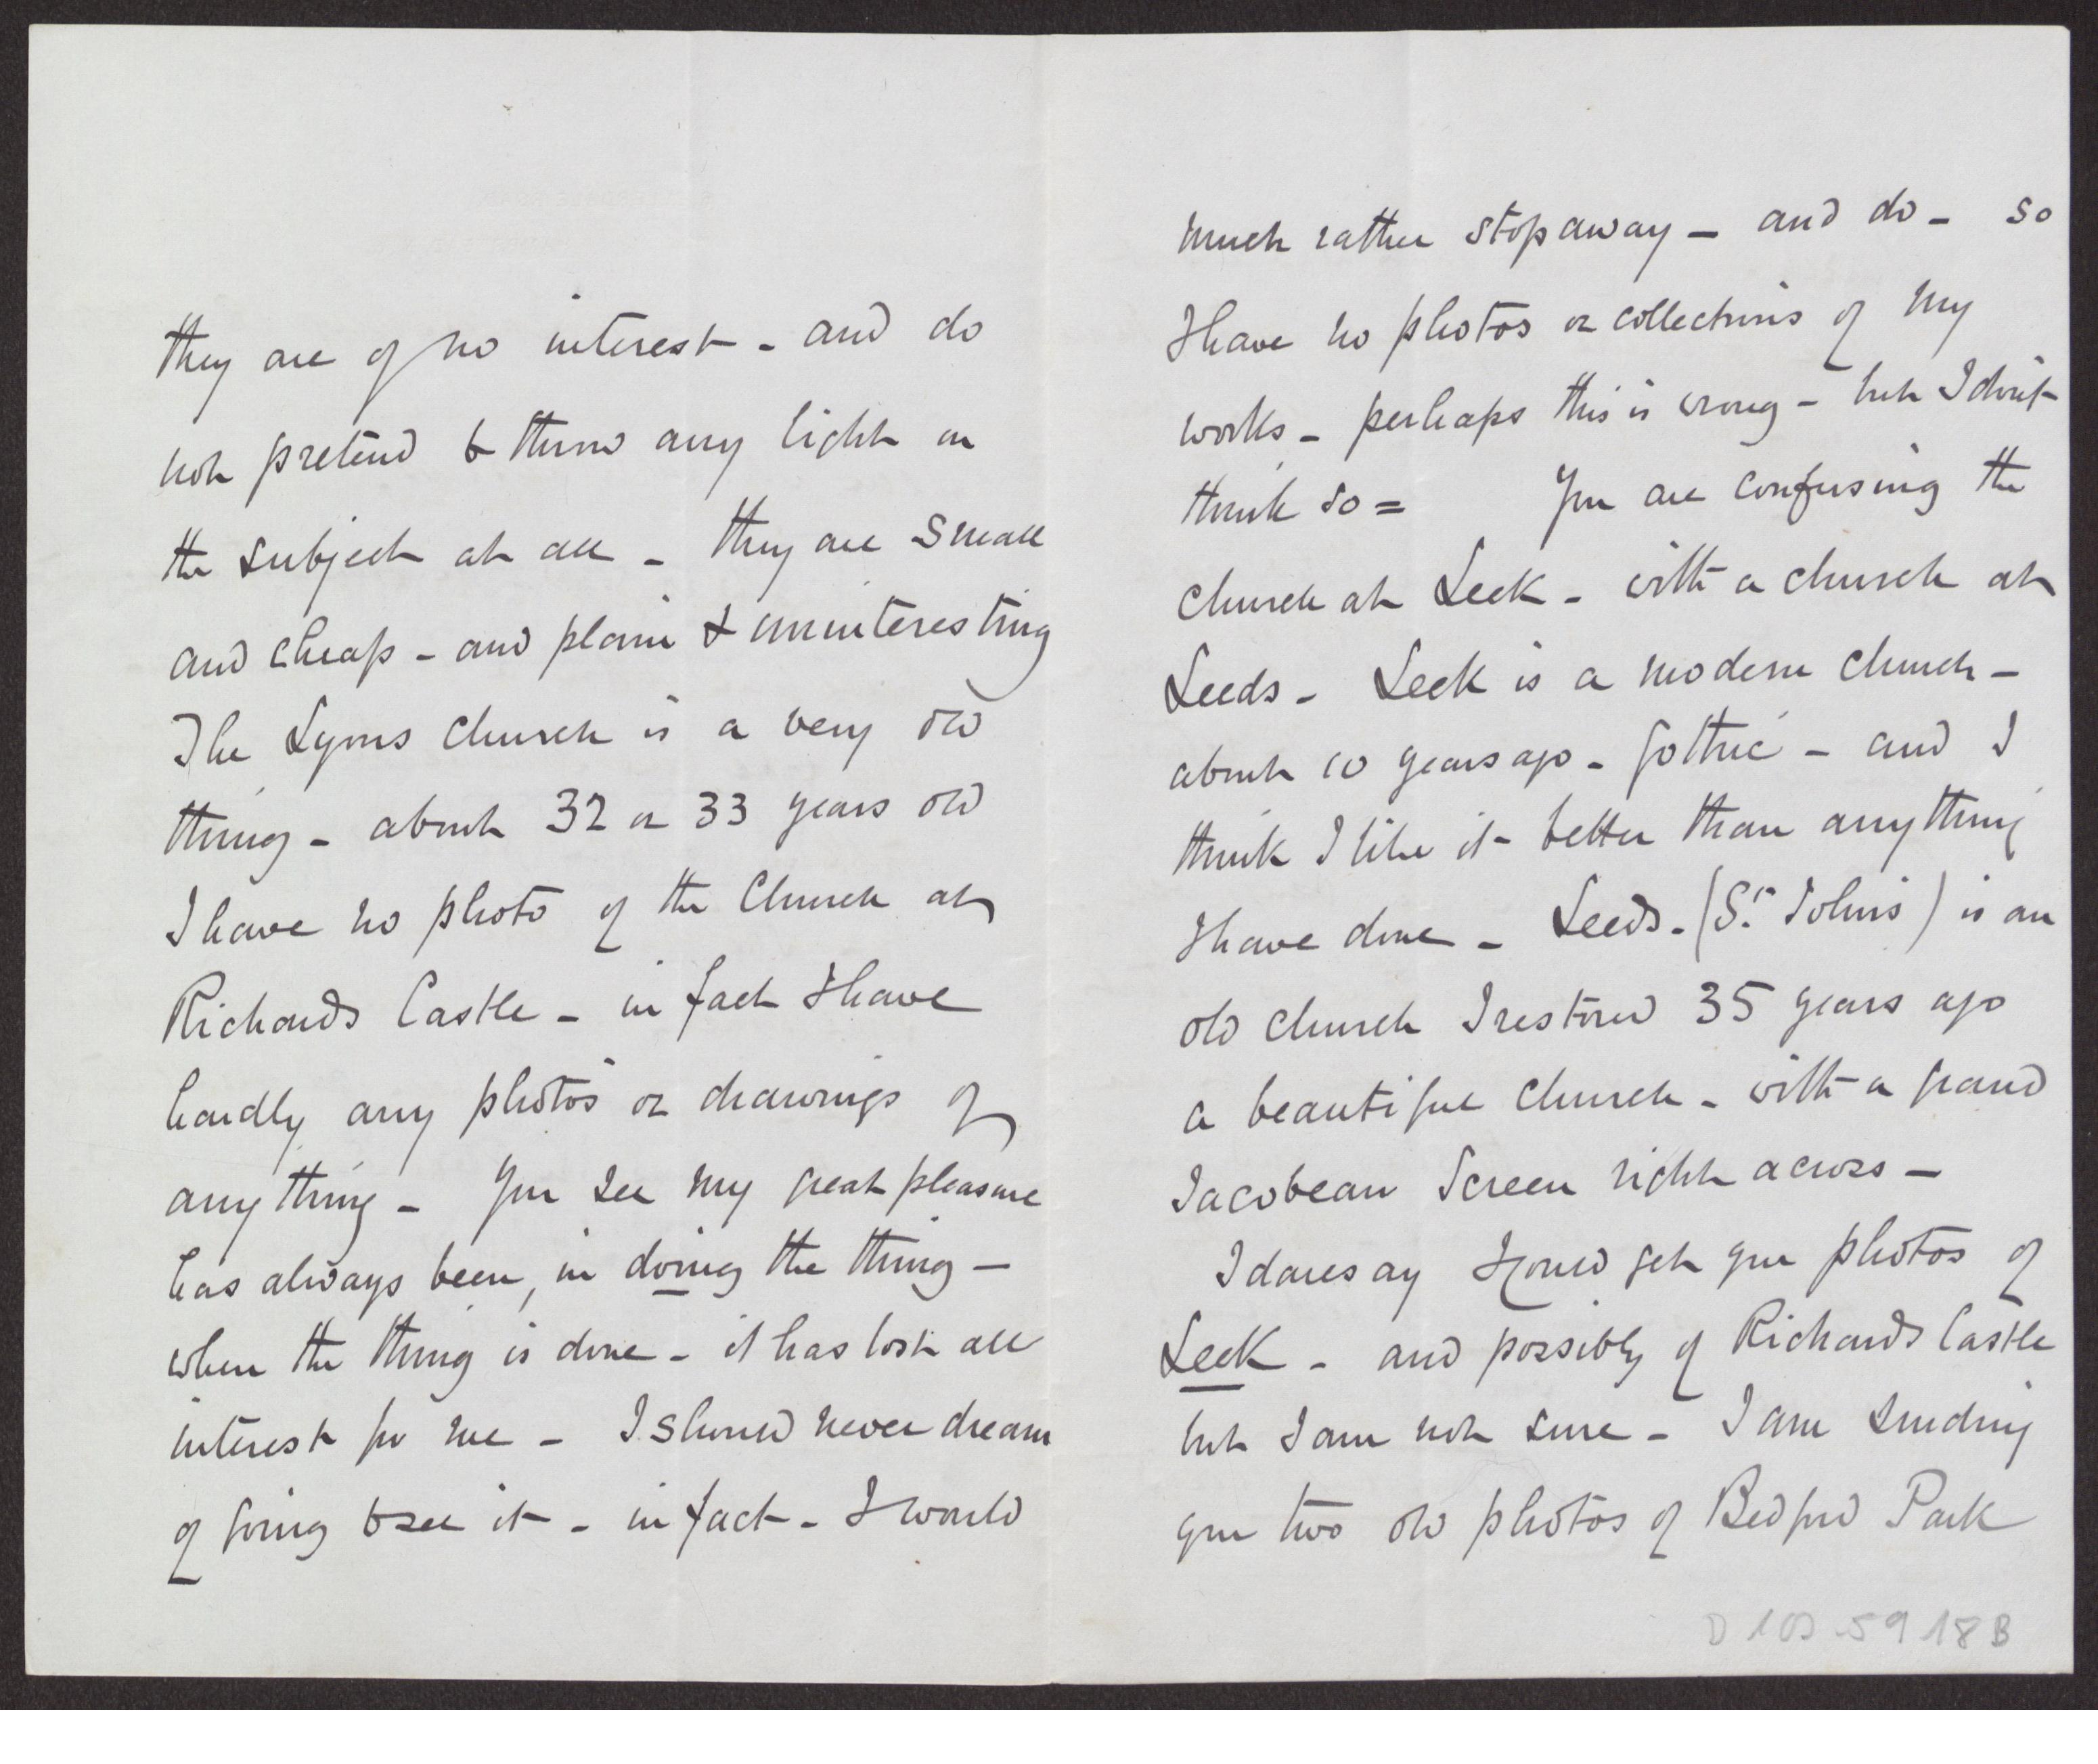 they are of no interest - and do
not pretend to throw any light on
the subject at all - they are small
and cheap - and plain & uninteresting
The Lyons church is a very old
thing - about 32 or 33 years old
I have no photo of the Church at
Richards Castle - in fact I have
hardly any photos or drawings of
anything - You see my great pleasure
has always been, in doing the thing -
when the thing is done - it has lost all
interest for me - I should never dream
of going to see it - in fact - I would
much rather stop away - and do - so
I have no photos or collections of my
works - perhaps this is wrong - but I don't
think so = You are confusing the
church at Leek - with a church at
Leeds - Leek is a modern church -
about 10 years ago - Gothic - and I
think I like it better than anything
I have done - Leeds - (St. John's) is an
old church I restored 35 years ago
a beautiful church - with a grand
Jacobean Screen right across -
I daresay I could get you photos of
Leek - and possibly of Richards Castle
but I am not sure - I am sending
you two old photos of Bedford Park
D 103.59 18B